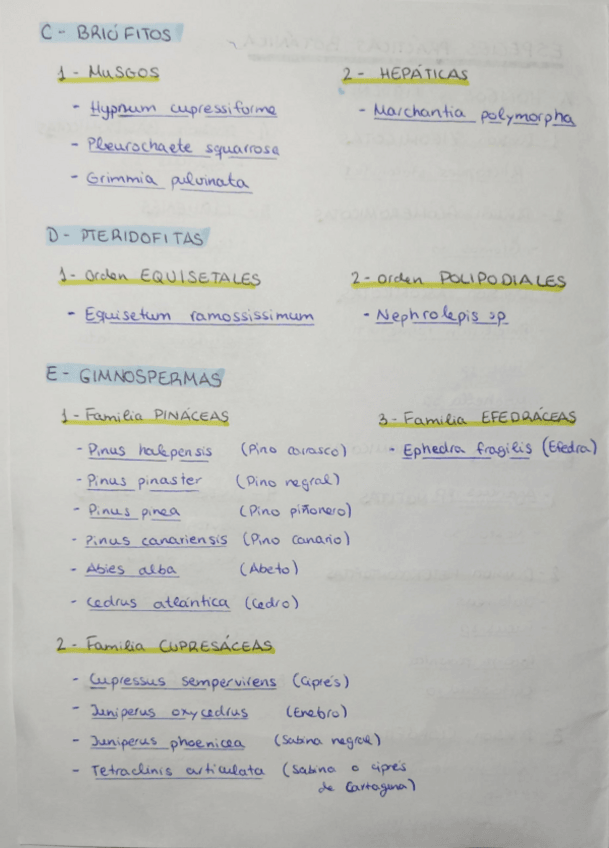 C - BRIÓFITOS
1 - MUSGOS
- Hypnum cupressiforme
- Pleurochaete squarrosa
- Grimmia pulvinata
2 - HEPÁTICAS
- Marchantia polymorpha
D - PTERIDOFITAS
1 - Orden EQUISETALES
- Equisetum ramossissimum
2 - Orden POLIPODIALES
- Nephrolepis sp
E - GIMNOSPERMAS
1 - Familia PINÁCEAS
- Pinus halepensis (Pino carrasco)
- Pinus pinaster (Pino negral)
- Pinus pinea (Pino piñonero)
- Pinus canariensis (Pino canario)
- Abies alba (Abeto)
- Cedrus atlántica (Cedro)
3 - Familia EFEDRÁCEAS
- Ephedra fragilis (Efedra)
2 - Familia CUPRESÁCEAS
- Cupressus sempervirens (Ciprés)
- Juniperus oxycedrus (Enebro)
- Juniperus phoenicea (Sabina negral)
- Tetraclinis articulata (Sabina o ciprés
de Cartagena)